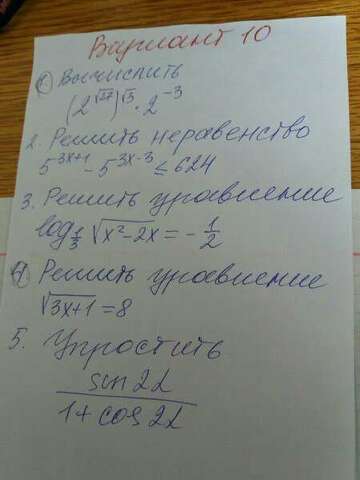 Вариант 10
1. Вычислить
(2^√27)^√3 · 2^-3
2. Решить неравенство
5^3x+1 - 5^3x-3 ≤ 624
3. Решить уравнение
log_1/3 √(x²-2x) = -1/2
4. Решить уравнение
√(3x+1) = 8
5. Упростить
sin 2α
1 + cos 2α